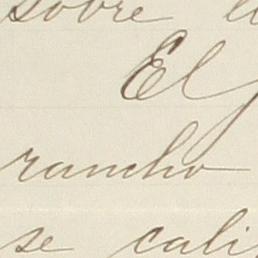 sobre
El
rancho
se cali